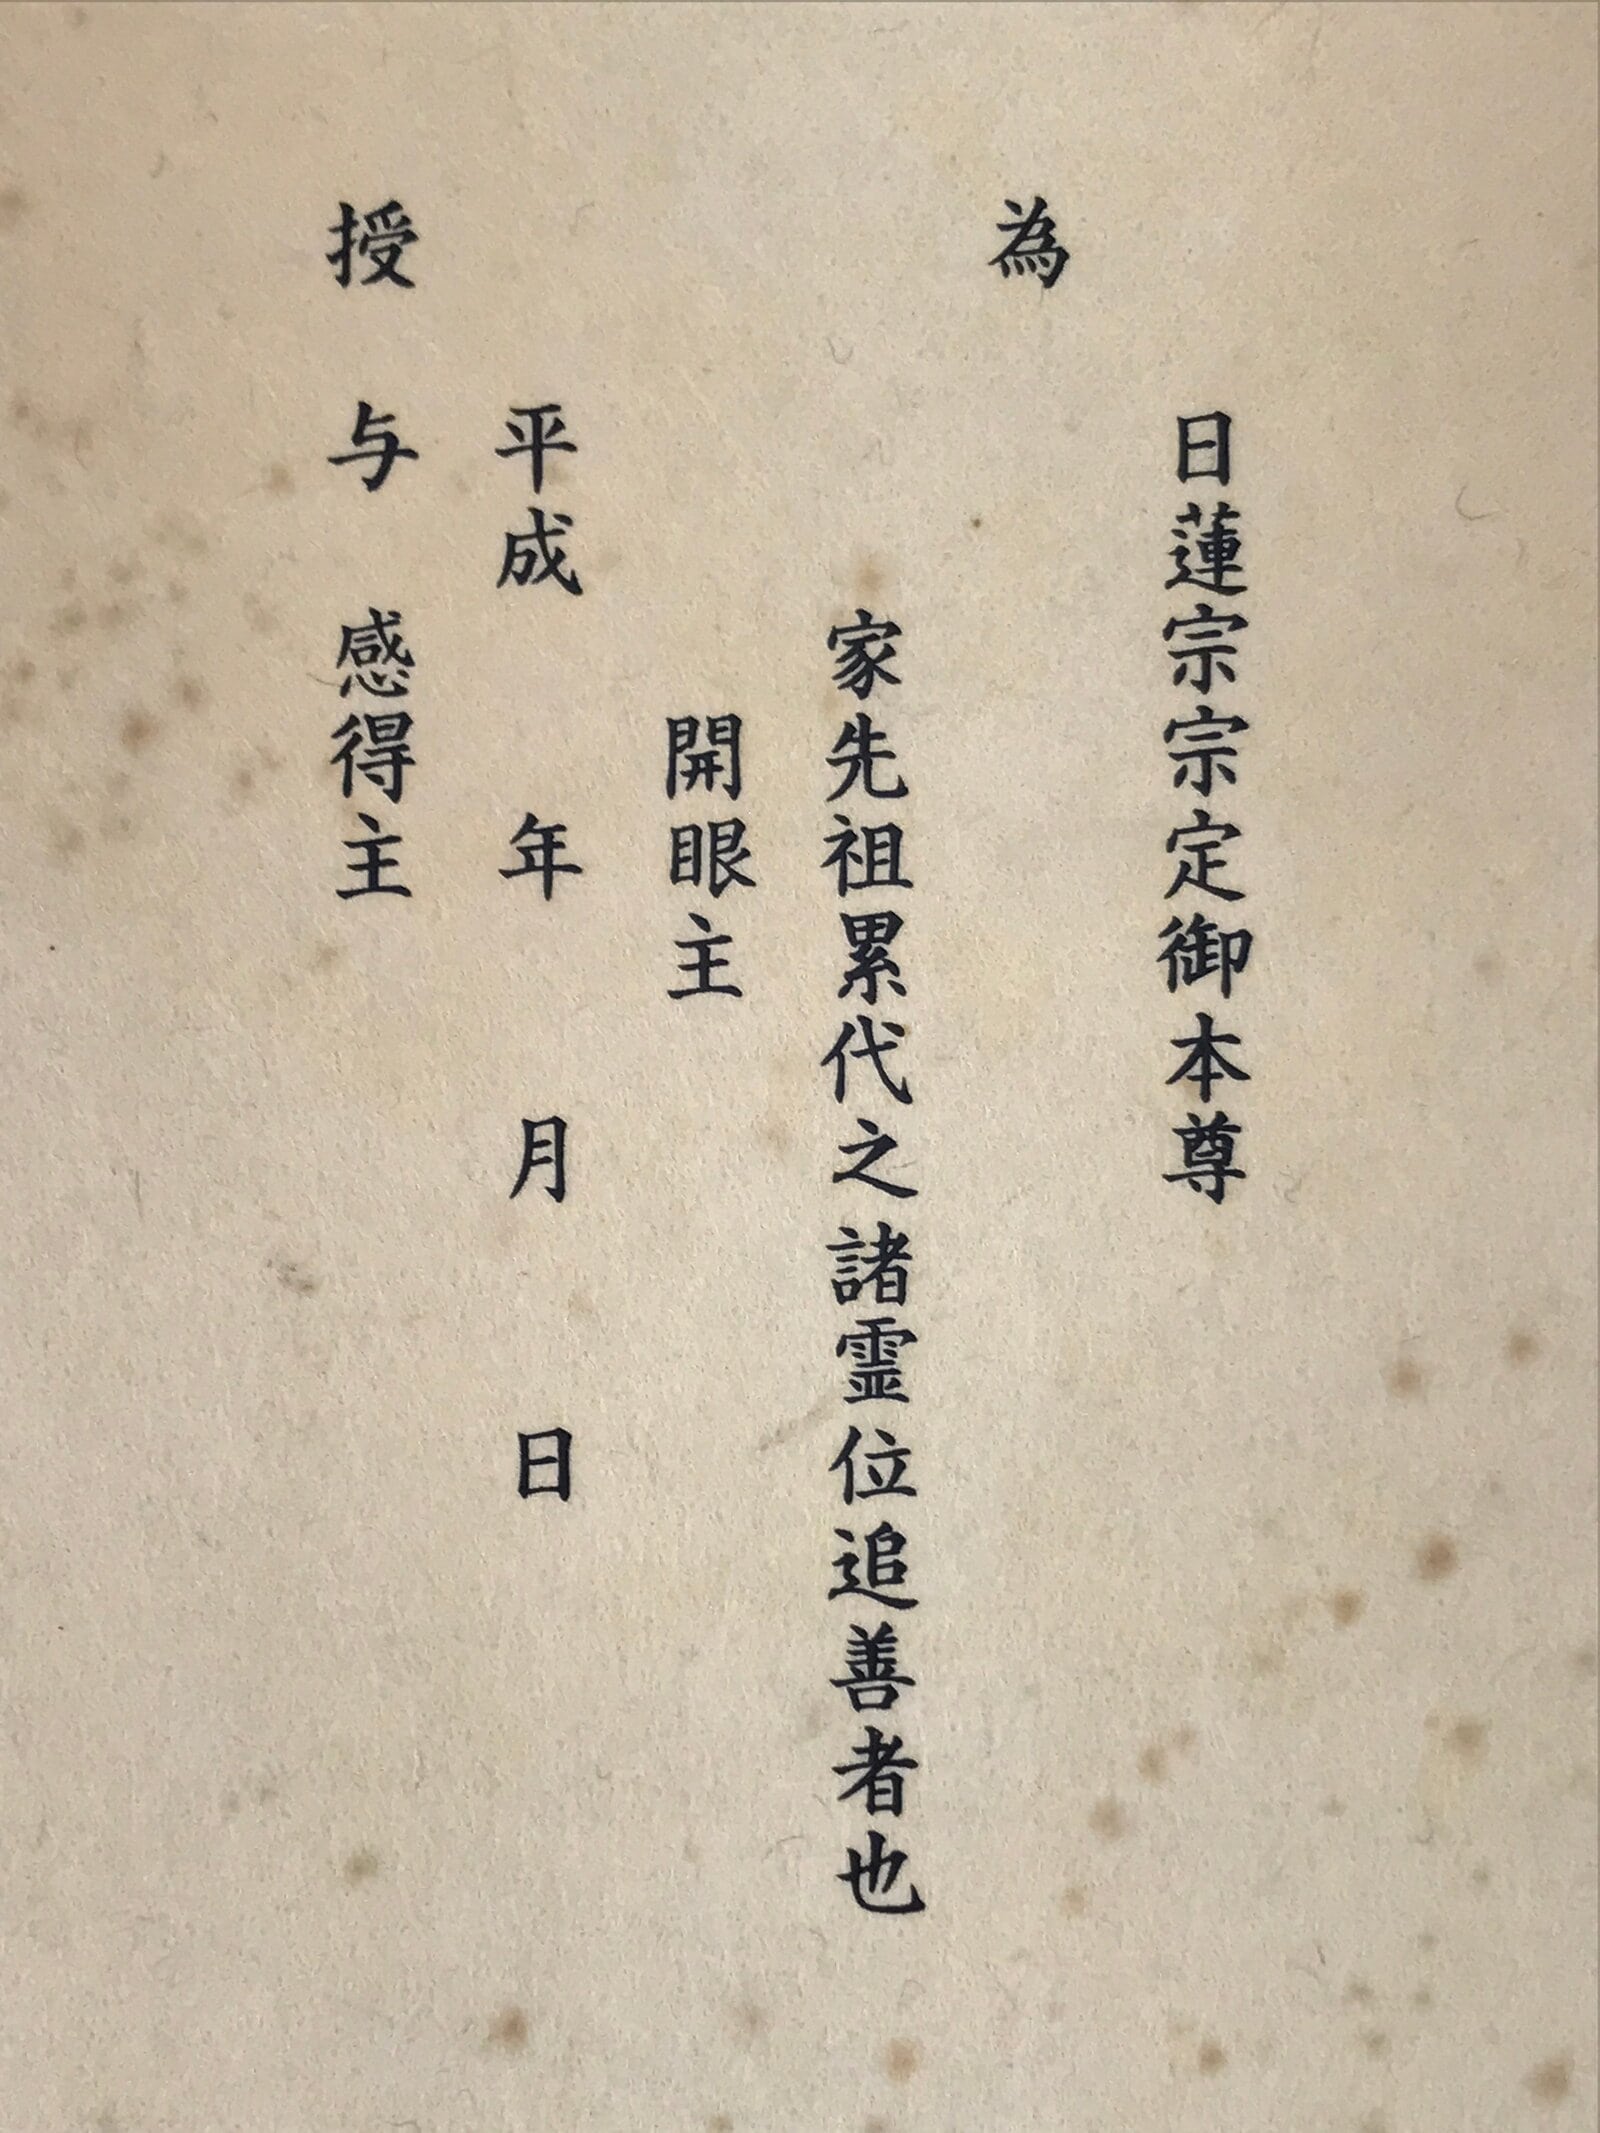 日蓮宗宗定御本尊
為
家先祖累代之諸霊位追善者也
開眼主
平成 年 月 日
授与 感得主